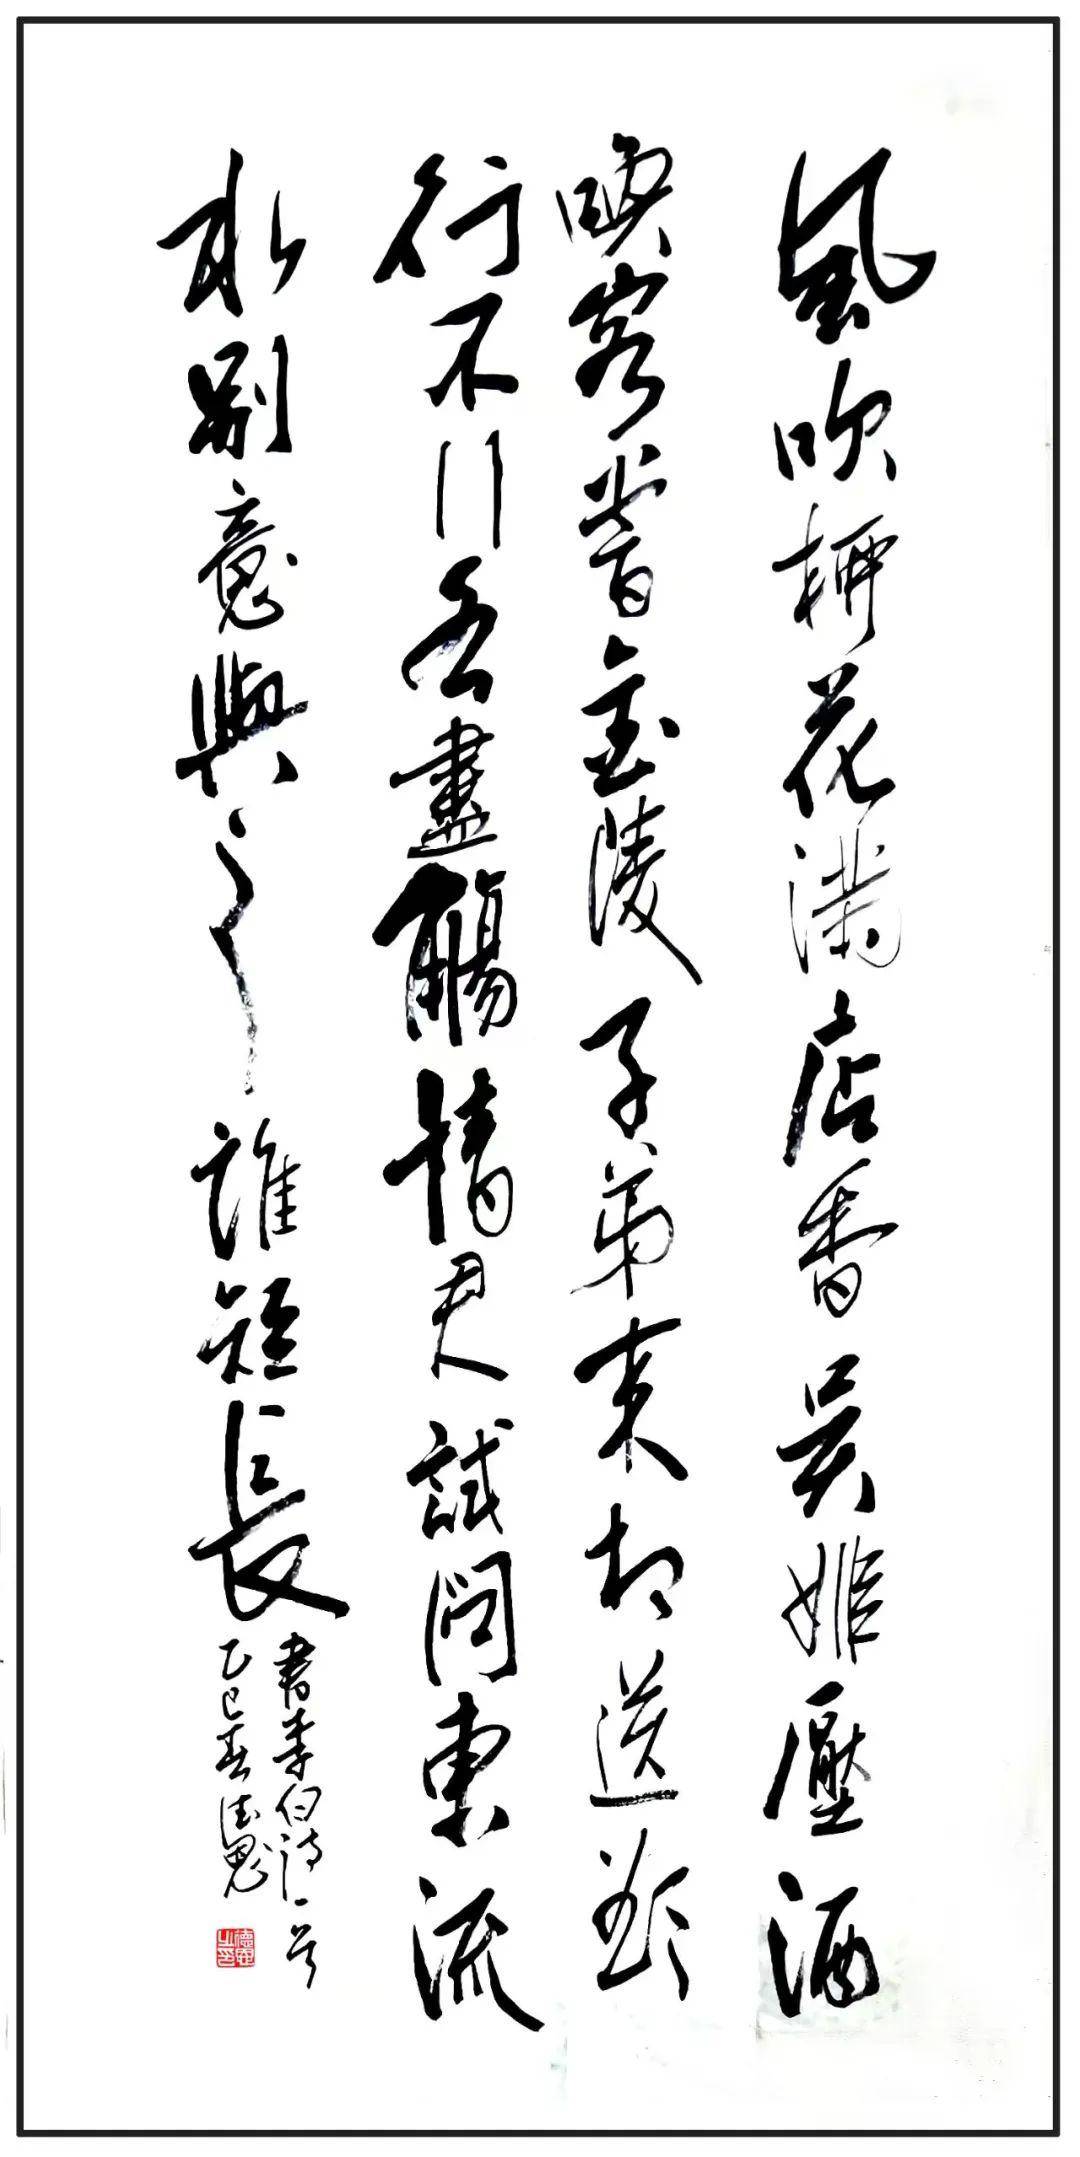 風吹柳花滿店香吳姬壓酒
喚客嘗金陵子弟來相送欲
行不行各盡觴請君試問東流
水別意與之誰短長
書李白詩一首
乙巳春德龍